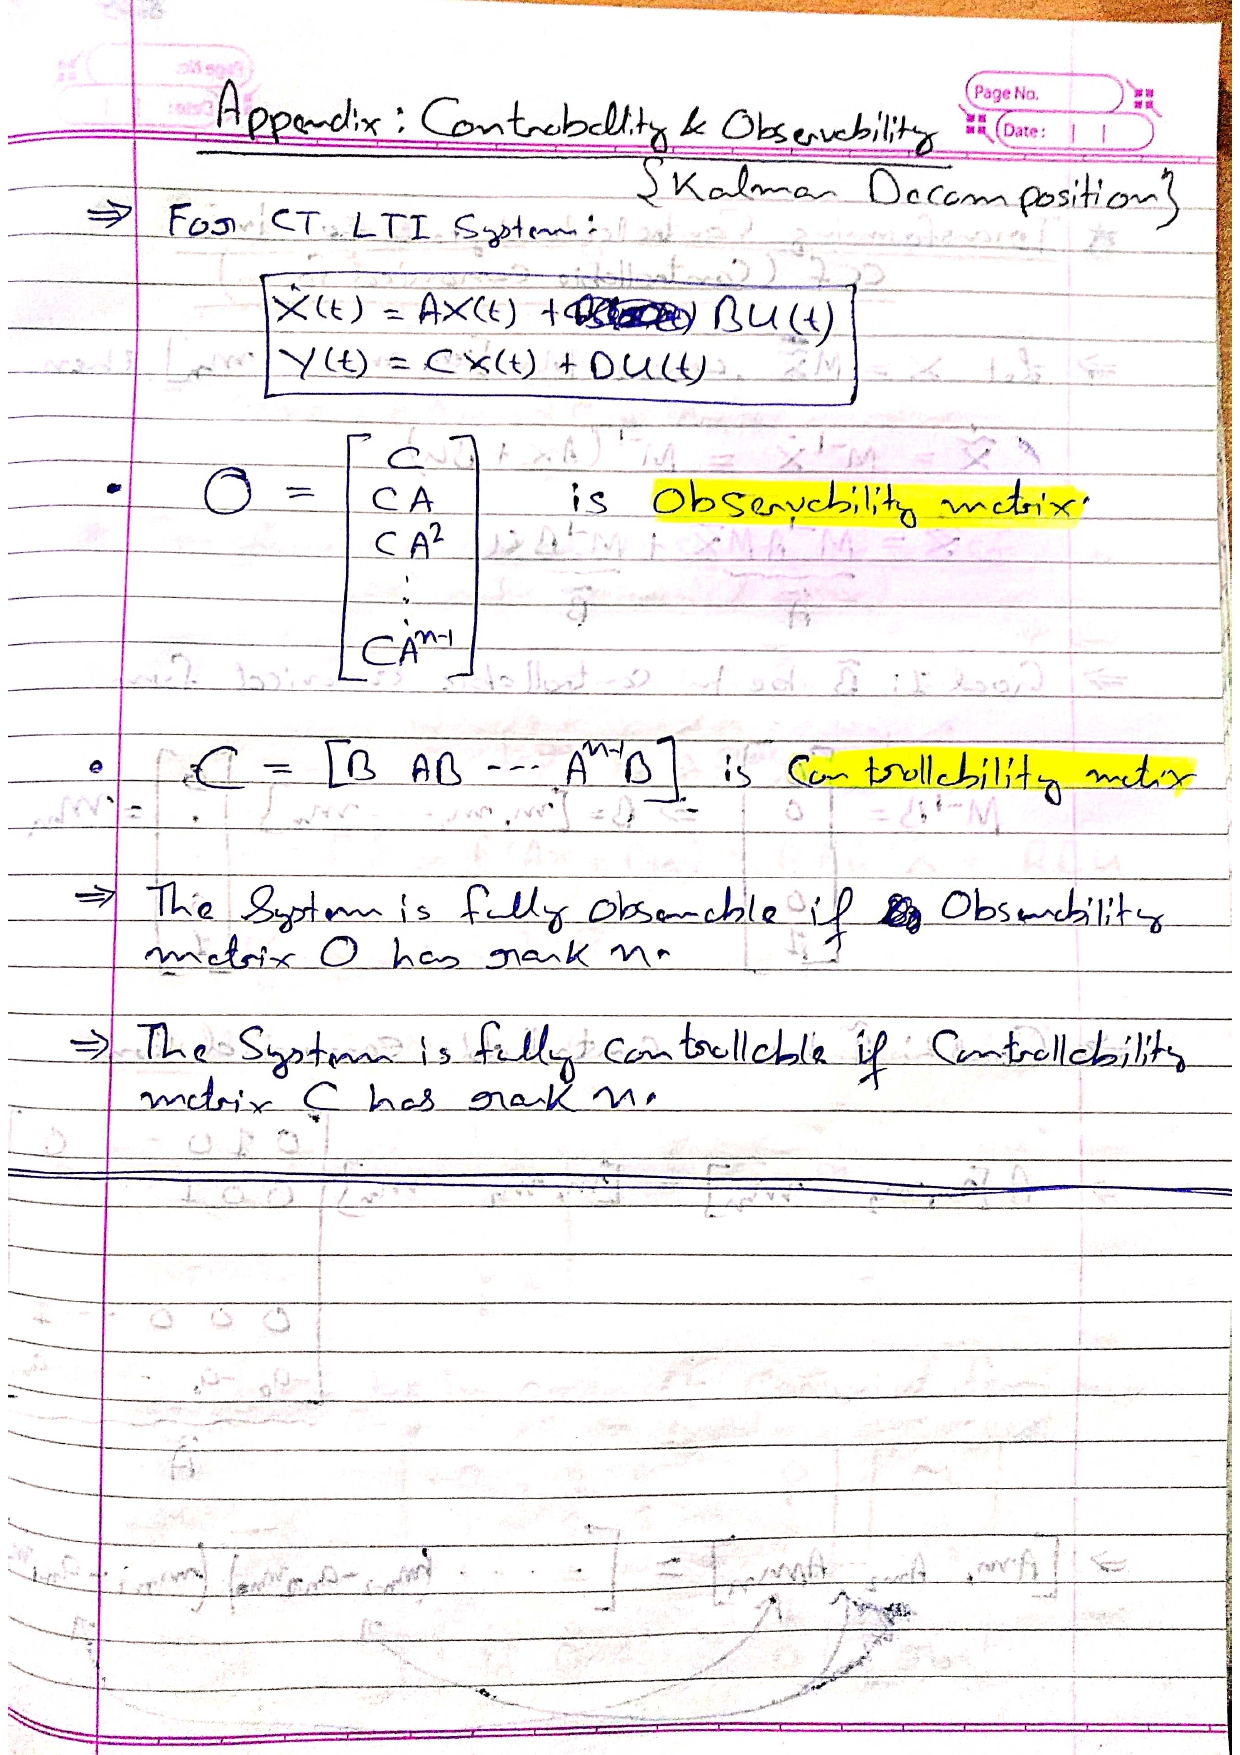 Page No.
Date:
Appendix: Controbellity & Observability
{Kalman Decomposition}
⇒ For CT LTI System:
Ẋ(t) = AX(t) + BU(t)
Y(t) = CX(t) + DU(t)
• O = [C
CA
CA²
⋮
CAⁿ⁻¹] is Observability matrix.
• C = [B AB --- Aⁿ⁻¹B] is Controllability matrix
⇒ The System is fully Observable if Observability
matrix O has rank n.
⇒ The System is fully controllable if Controllability
matrix C has rank n.